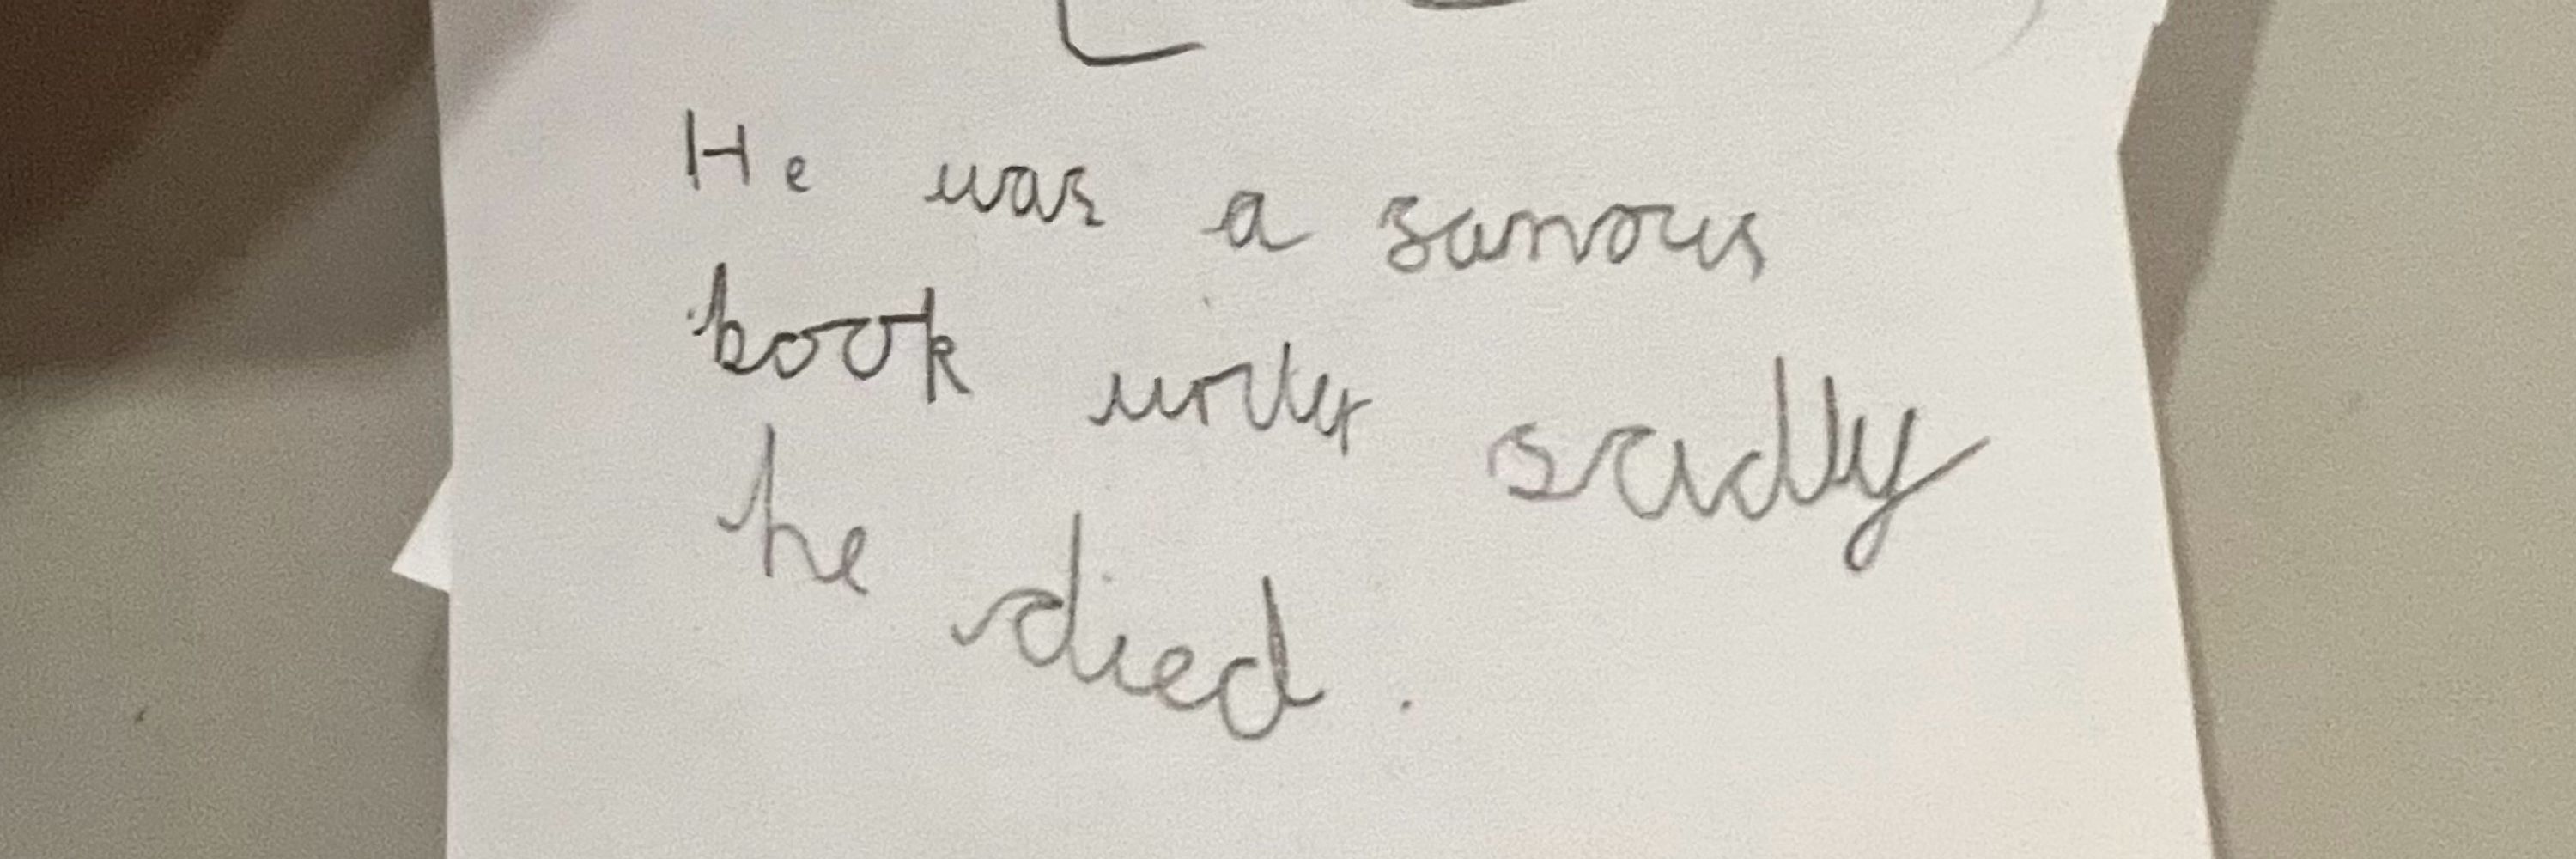 He was a famous
book writer sadly
he died.